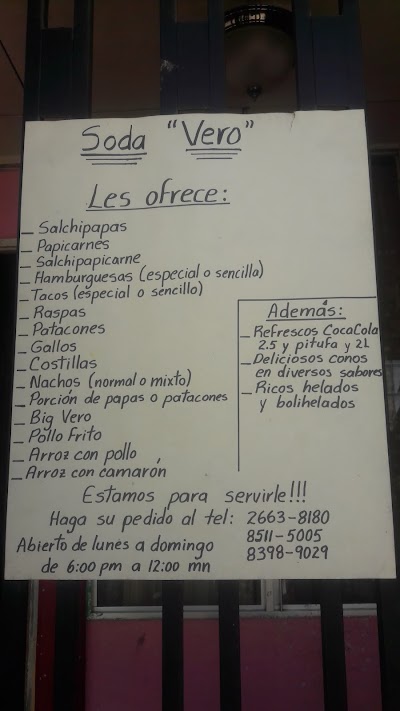 Soda "Vero"
Les ofrece:
_ Salchipapas
_ Papicarnes
_ Salchipapicarne
_ Hamburguesas (especial o sencilla)
_ Tacos (especial o sencillo)
_ Raspas
_ Patacones
_ Gallos
_ Costillas
_ Nachos (normal o mixto)
_ Porción de papas o patacones
_ Big Vero
_ Pollo Frito
_ Arroz con pollo
_ Arroz con camarón
Además:
_ Refrescos CocaCola
2.5 y pitufa y 2L
_ Deliciosos conos
en diversos sabores
_ Ricos helados
y bolihelados
Estamos para servirle!!!
Haga su pedido al tel: 2663-8180
8511-5005
8398-9029
Abierto de lunes a domingo
de 6:00 pm a 12:00 mn